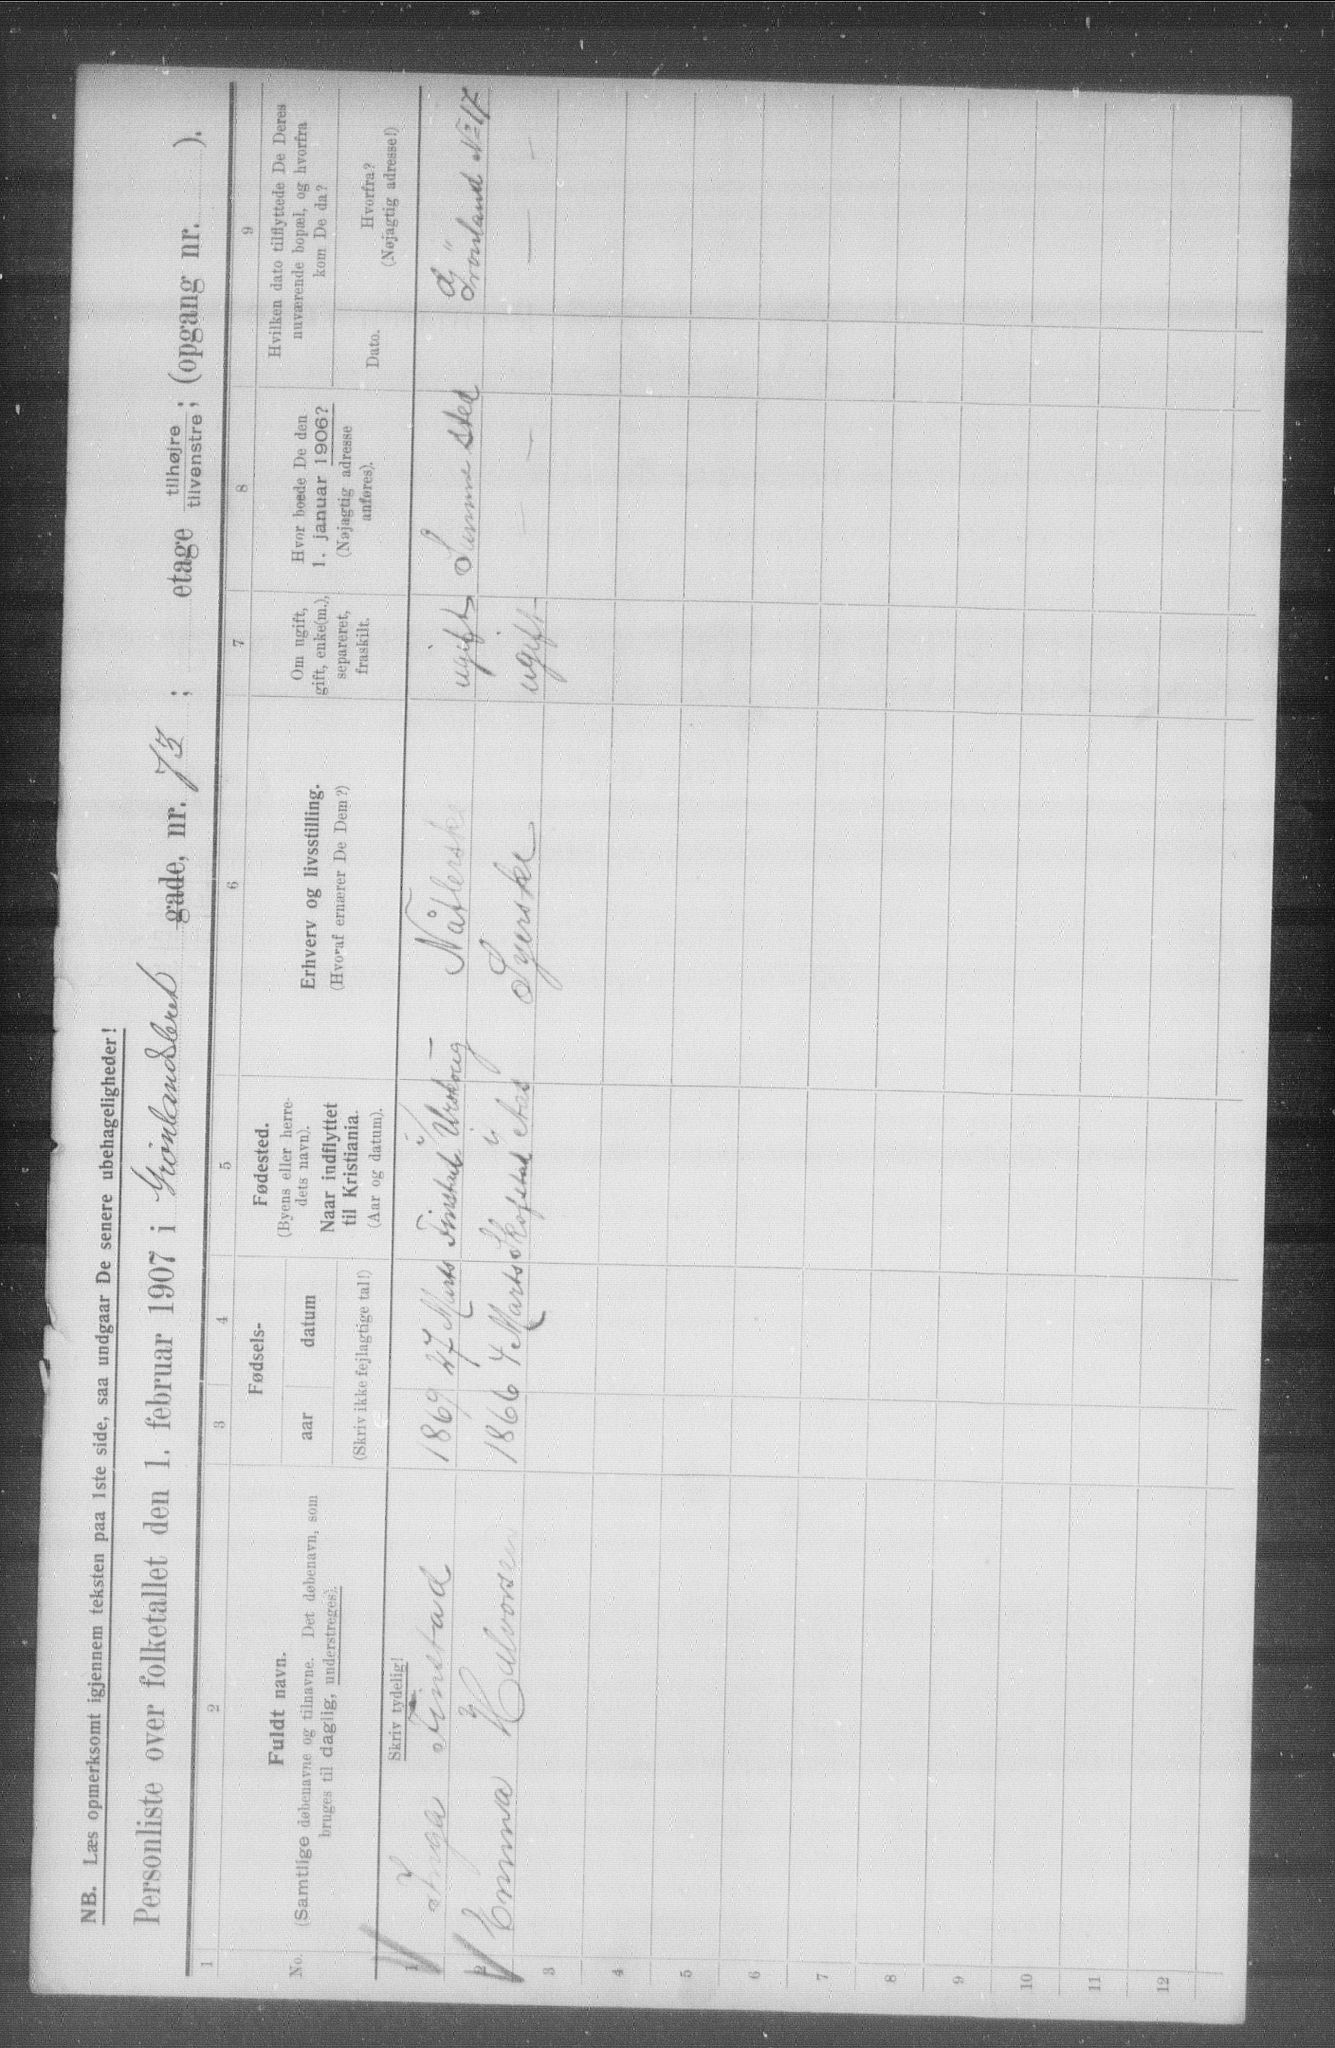 NB. Læs opmerksomt igjennem teksten paa 1ste side, saa undgaar De senere ubehageligheder!
Personliste over folketallet den 1. februar 1907 i Grönlandsleret gade, nr. 73; etage tilhøjre tilvenstre; (opgang nr. ).
1 2 3 4 5 6 7 8 9
No.
Fuldt navn.
(Samtlige døbenavne og tilnavne. Det døbenavn, som
bruges til daglig, understreges).
Fødsels-
aar datum
(Skriv ikke fejlagtige tal!)
Fødested.
(Byens eller herre-
dets navn).
Naar indflyttet
til Kristiania.
(Aar og datum).
Erhverv og livsstilling.
(Hvoraf ernærer De Dem?)
Om ugift,
gift, enke(m.),
separeret,
fraskilt.
Hvor boede De den
1. januar 1906?
(Nøjagtig adresse
anføres).
Hvilken dato tilflyttede De Deres
nuværende bopæl, og hvorfra
kom De da?
Dato.
Hvorfra?
(Nøjagtig adresse!)
Skriv tydelig!
1 Inga Finstad 1869 27 Marts Finstad Urskoug Nåtlerske ugift Samme sted Grönland No 17
2 Emma Halvorsen 1866 4 Marts Skofstad Syerske ugift — — — —
3
4
5
6
7
8
9
10
11
12